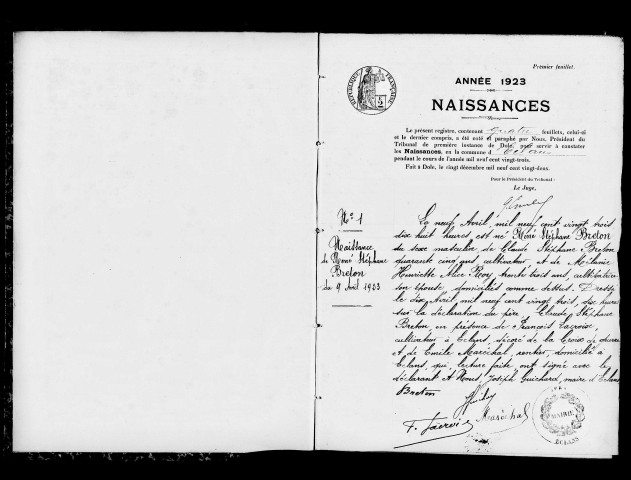 Premier feuillet.
ANNÉE 1923
NAISSANCES
RÉPUBLIQUE FRANÇAISE
Le présent registre, contenant quatre feuillets, celui-ci
et le dernier compris, a été coté et paraphé par Nous, Président du
Tribunal de première instance de Dole, pour servir à constater
les Naissances, en la commune d'Éclans
pendant le cours de l'année mil neuf cent vingt-trois.
Fait à Dole, le vingt décembre mil neuf cent vingt-deux.
Pour le Président du Tribunal :
Le Juge,
N° 1
Naissance
de René Stéphane
Breton
du 9 Avril 1923
Le neuf Avril, mil neuf cent vingt trois
dix huit heures est né René Stéphane Breton
du sexe masculin de Claude Stéphane Breton
quarante cinq ans cultivateur et de Mélanie
Henriette Alice Roy trente trois ans, cultivatrice
son épouse domiciliés comme dessus. Dressé
le dix Avril, mil neuf cent vingt trois, dix heures
sur la déclaration du père, Claude Stéphane
Breton en présence de François Lacroix,
cultivateur à Eclans, décoré de la Croix de guerre
et de Emile Maréchal, rentier, domicilié à
Eclans, qui, lecture faite ont signé avec le
déclarant et Nous, Joseph Guichard, maire d'Eclans
Breton
Maréchal
MAIRIE
ECLANS